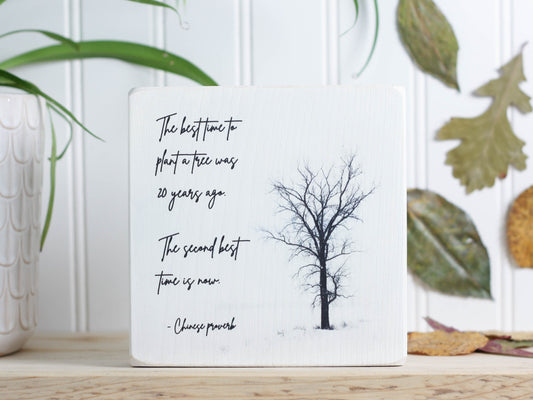 The best time to
plant a tree was
20 years ago.
The second best
time is now.
- Chinese proverb